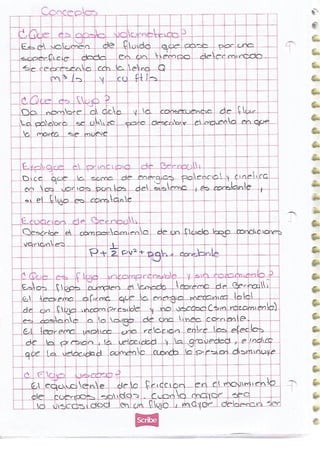 Conceptos
¿Que es gasto volumetrico?
Es el volumen de fluido que pasa por una
superficie dada en un tiempo determinado
Se representa con la letra Q
m³/s y cu ft/s
¿Que es flujo?
Da nombre al acto y la consecuencia de fluir
La palabra se utiliza para describir el momento en que
la marea se mueve
Explique el principio de Bernoulli
Dice que la suma de energias potencial y cinetica
en los varios puntos del sistema, es constante,
si el flujo es constante
Ecuacion de Bernoulli
Describe el comportamiento de un fluido bajo condiciones
variantes
P + 1/2 ρv² + ρgh = constante
¿Que es flujo incomprensible y sin rozamiento?
Estos flujos cumplen el llamado teorema de Bernoulli
El teorema afirma que la energia mecanica total
de un flujo incompresible y no viscoso (sin rozamiento)
es constante a lo largo de una linea corriente.
El teorema implica una relacion entre los efectos
de la presion, la velocidad y la gravedad, e indica
que la velocidad aumenta cuando la presion disminuye
¿Flujo viscoso?
El equivalente de la friccion en el movimiento
de cuerpos solidos. cuanto mayor sea
la viscosidad en un flujo, mayor deberan ser
Scribe